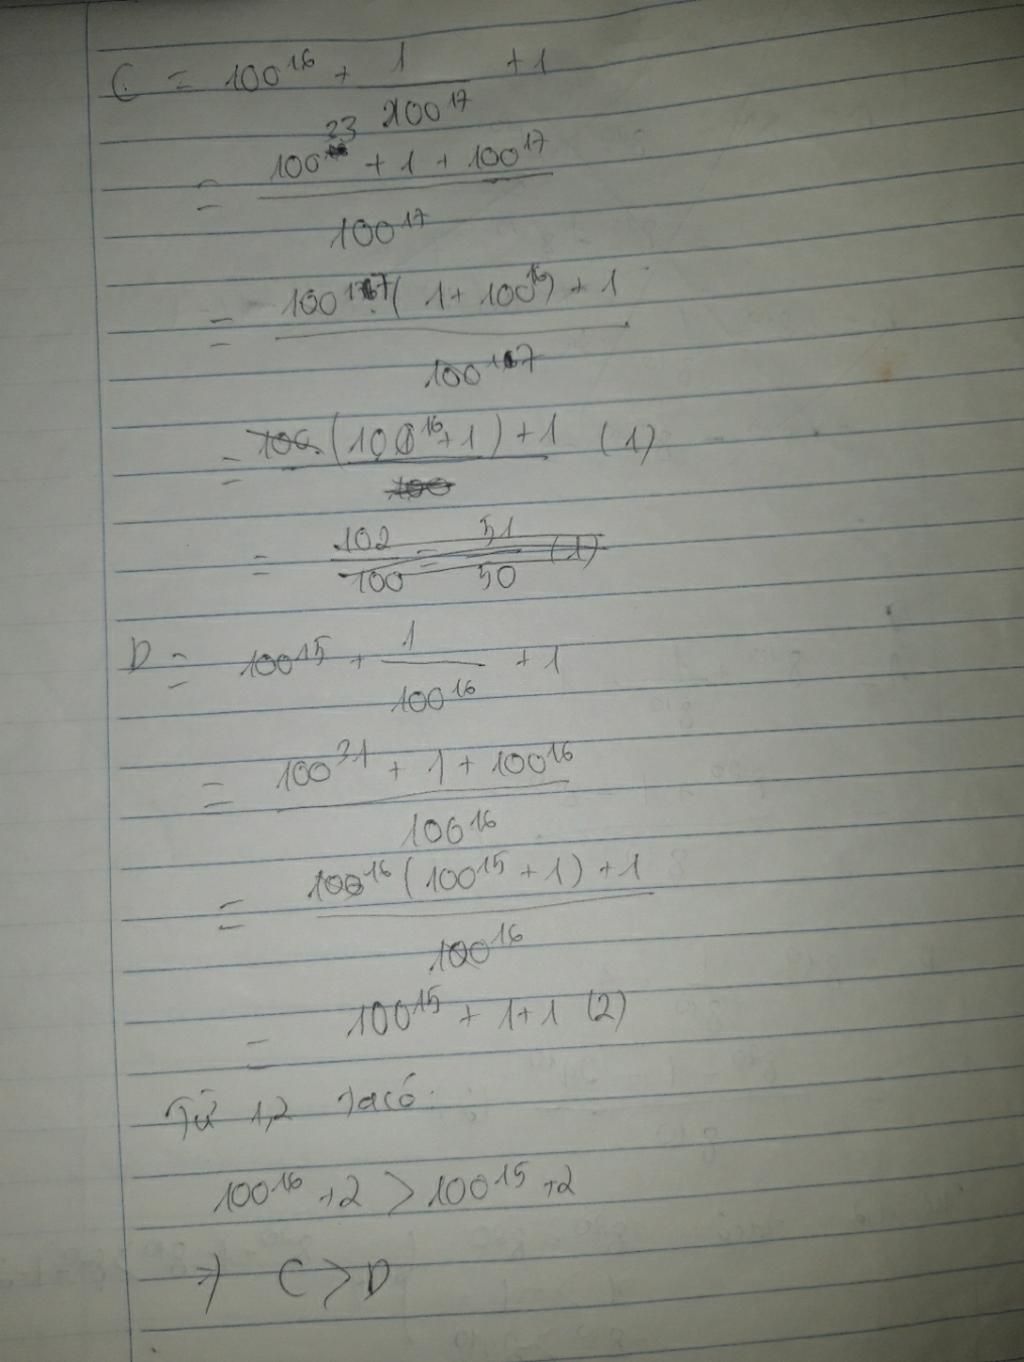 C = 100^16 + 1/100^17 + 1
= (100^33 + 1 + 100^17)/100^17
= (100^17 (1 + 100^16) + 1)/100^17
= (100^16 + 1) + 1 (1)
= 102/100 = 51/50 (1)
D = 100^15 + 1/100^16 + 1
= (100^31 + 1 + 100^16)/100^16
= (100^16 (100^15 + 1) + 1)/100^16
= 100^15 + 1 + 1 (2)
Từ 1,2 ta có:
100^16 + 2 > 100^15 + 2
=> C > D